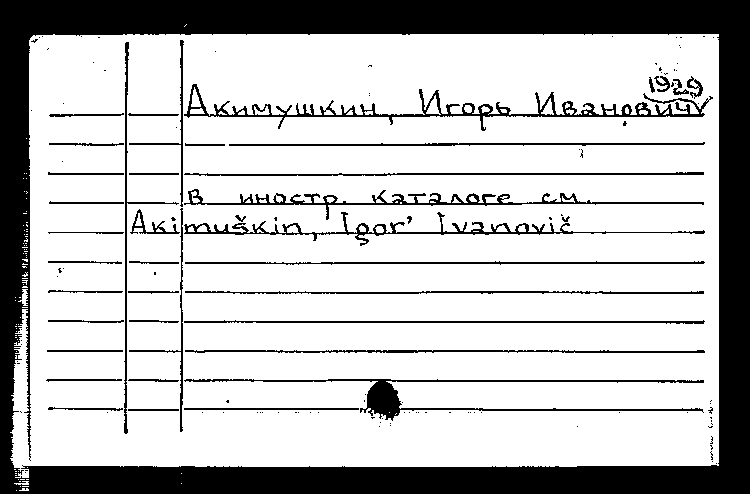 1929
Акимушкин, Игорь Иванович
в иностр. каталоге см.
Akimuškin, Igor' Ivanovič